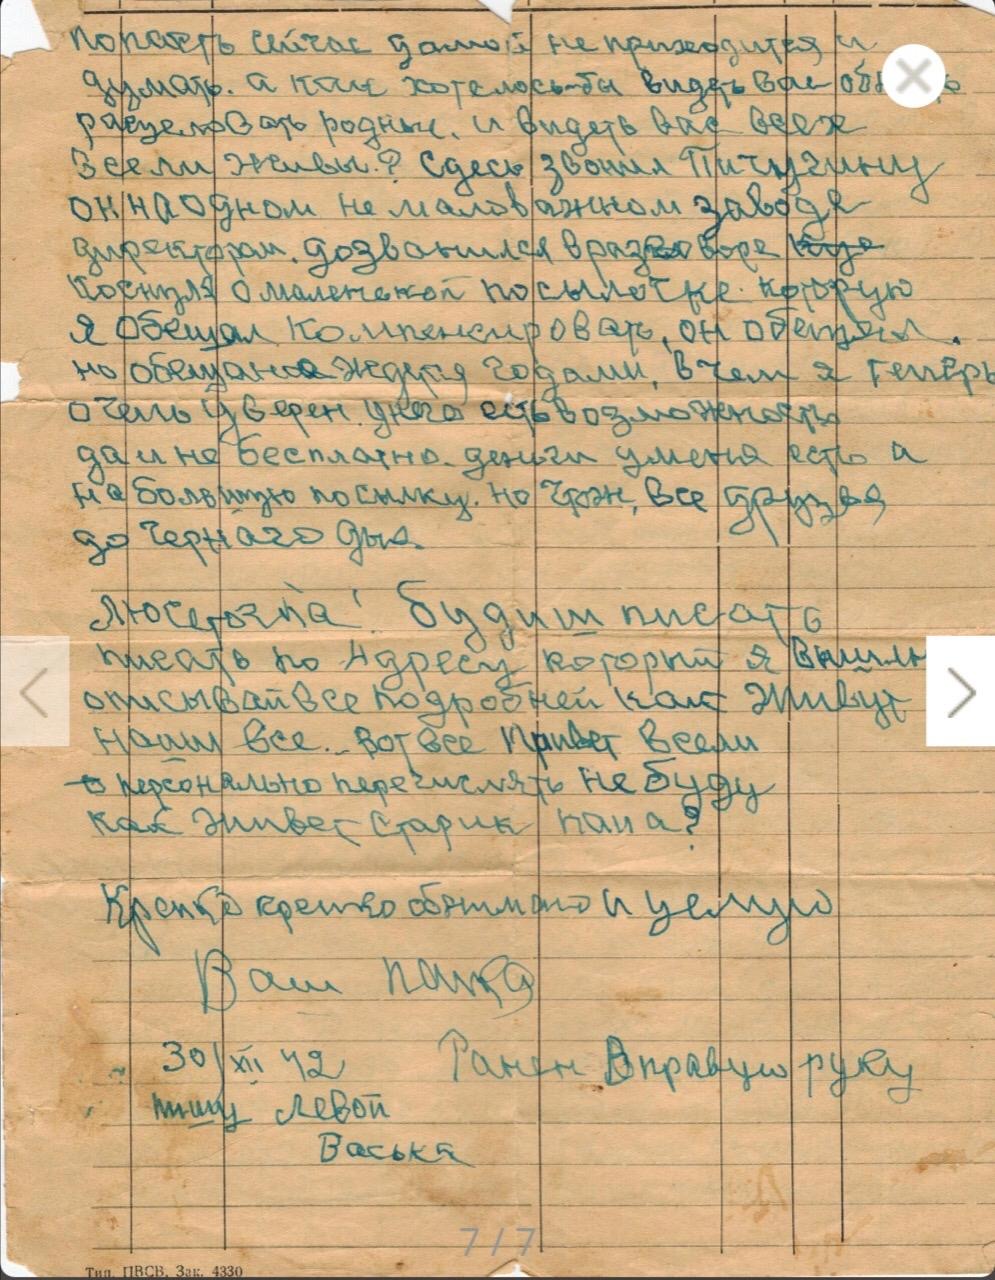 попасть сейчас дамой не приходится и
думать. а как хотелось-бы видеть вас
расцеловать родных. и видеть вас всех
все ли живы? Сдесь звонил Пичугину
он на одном не маловажном заводе
директором. дозванился в разговоре
коснулся о маленькой посылочке. которую
я обещал компенсировать, он обещал.
но обещаное ждется годами, в чем я теперь
очень уверен. унего есть возможность
да и не бесплатно. деньги уменя есть а
на большую посылку. но все друзья
до чернаго дня.
Люсеточка! будиш писать
писать по Адресу который я вышлю
описывай все подробней как живут
наши все. вот все привет всем
персонально перечислять не буду
как живет старик папа?
Крепко крепко обнимаю и целую
Ваш папка
30/XII 42 Ранен В правую руку
пишу левой
Васька
7/7
Тип. ПВСВ. Зак. 4330